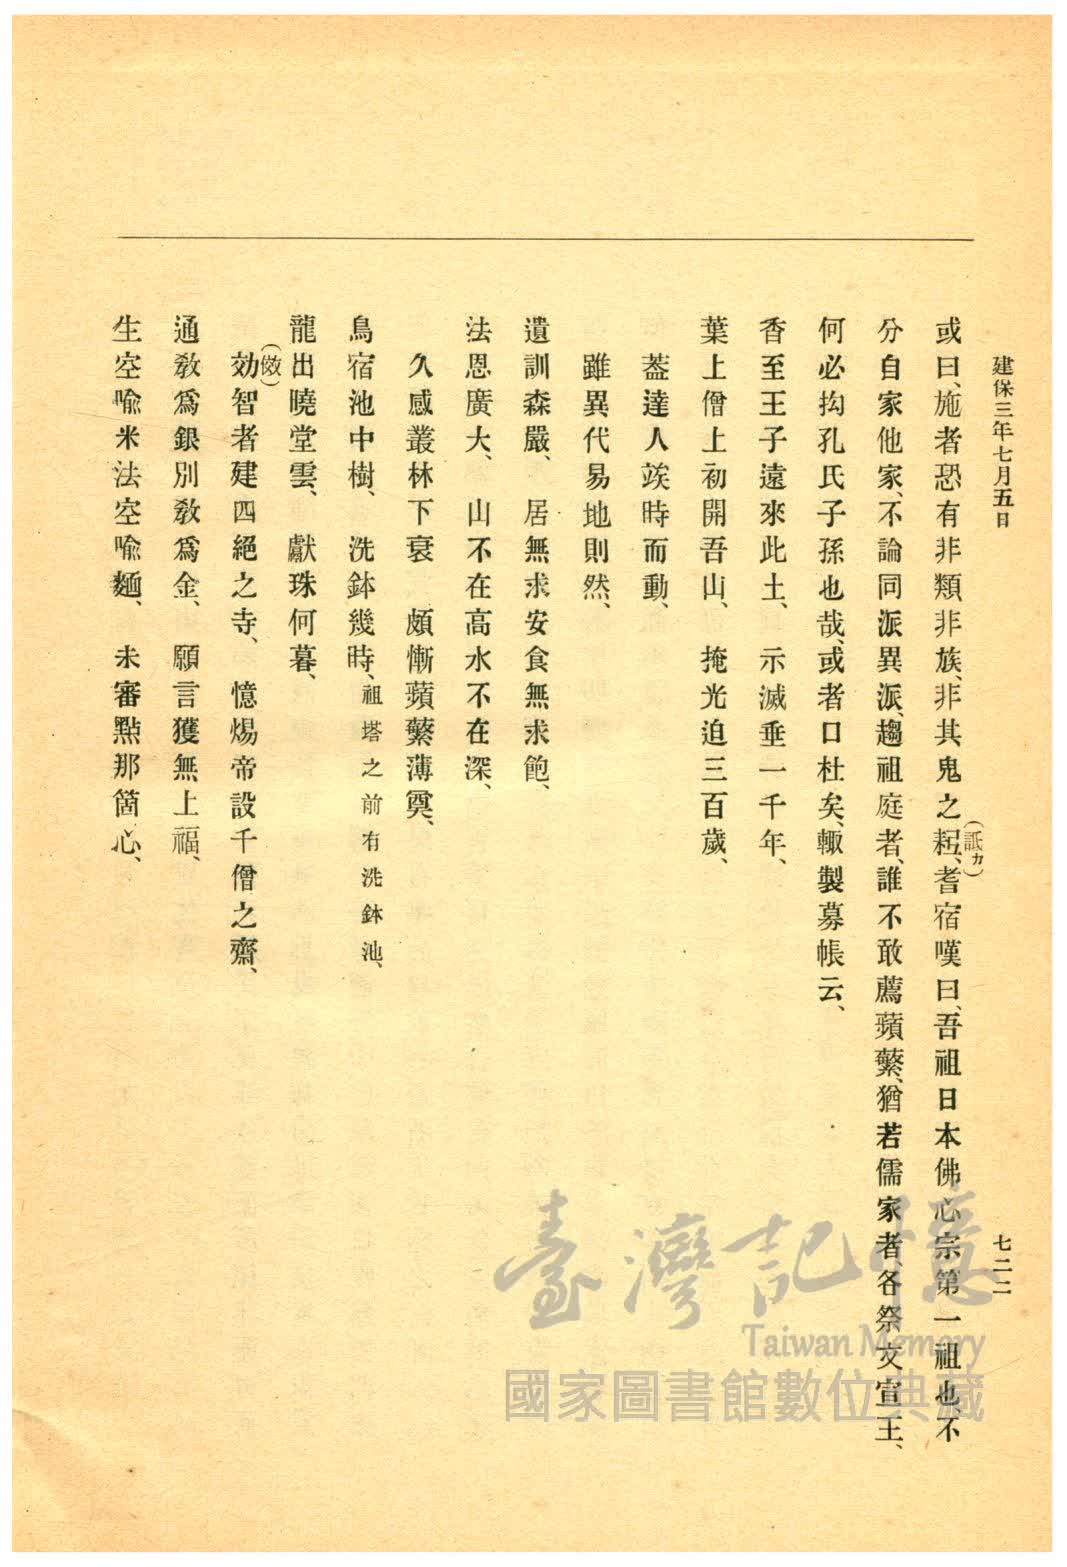 建保三年七月五日
七二二
或曰、施者恐有非類、非族、非其鬼之耟、耆宿嘆曰、吾祖日本佛心宗第一祖也、不
(詆カ)
分自家他家、不論同派異派、趨祖庭者、誰不敢薦蘋蘩、猶若儒家者、各祭文宣王、
何必拘孔氏子孫也哉、或者口杜矣、輙製募帳云、
香至王子遠來此土、示滅垂一千年、
葉上僧上初開吾山、掩光迫三百歲、
葢達人竢時而動、
雖異代易地則然、
遺訓森嚴、居無求安食無求飽、
法恩廣大、山不在高水不在深、
久感叢林下衰　頗慚蘋蘩薄奠、
鳥宿池中樹、洗鉢幾時、祖塔之前有洗鉢池、
龍出曉堂雲、獻珠何暮、
(傚)
効智者建四絕之寺、憶煬帝設千僧之齋、
通敎爲銀別敎爲金、願言獲無上福、
生空喩米法空喩麵、未審點那箇心、
臺灣記憶
Taiwan Memory
國家圖書館數位典藏